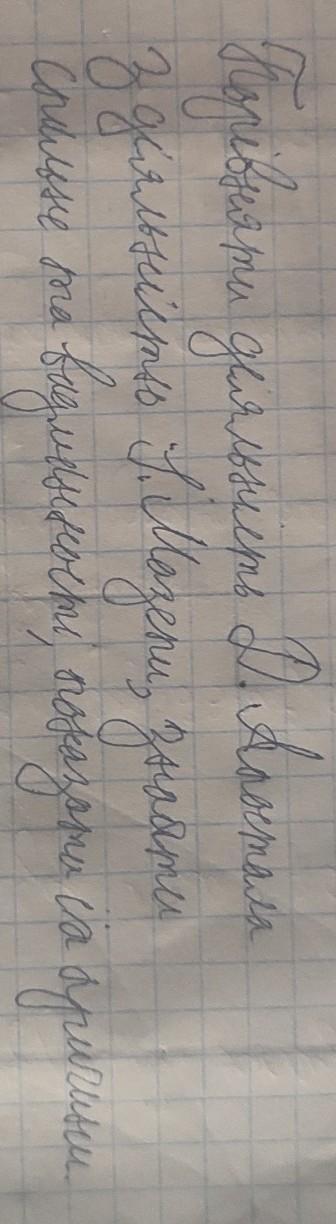 Порівняти діяльність Д. Апостола
з діяльністю І. Мазепи, знайти
спільне та відмінності, показати їх причини.